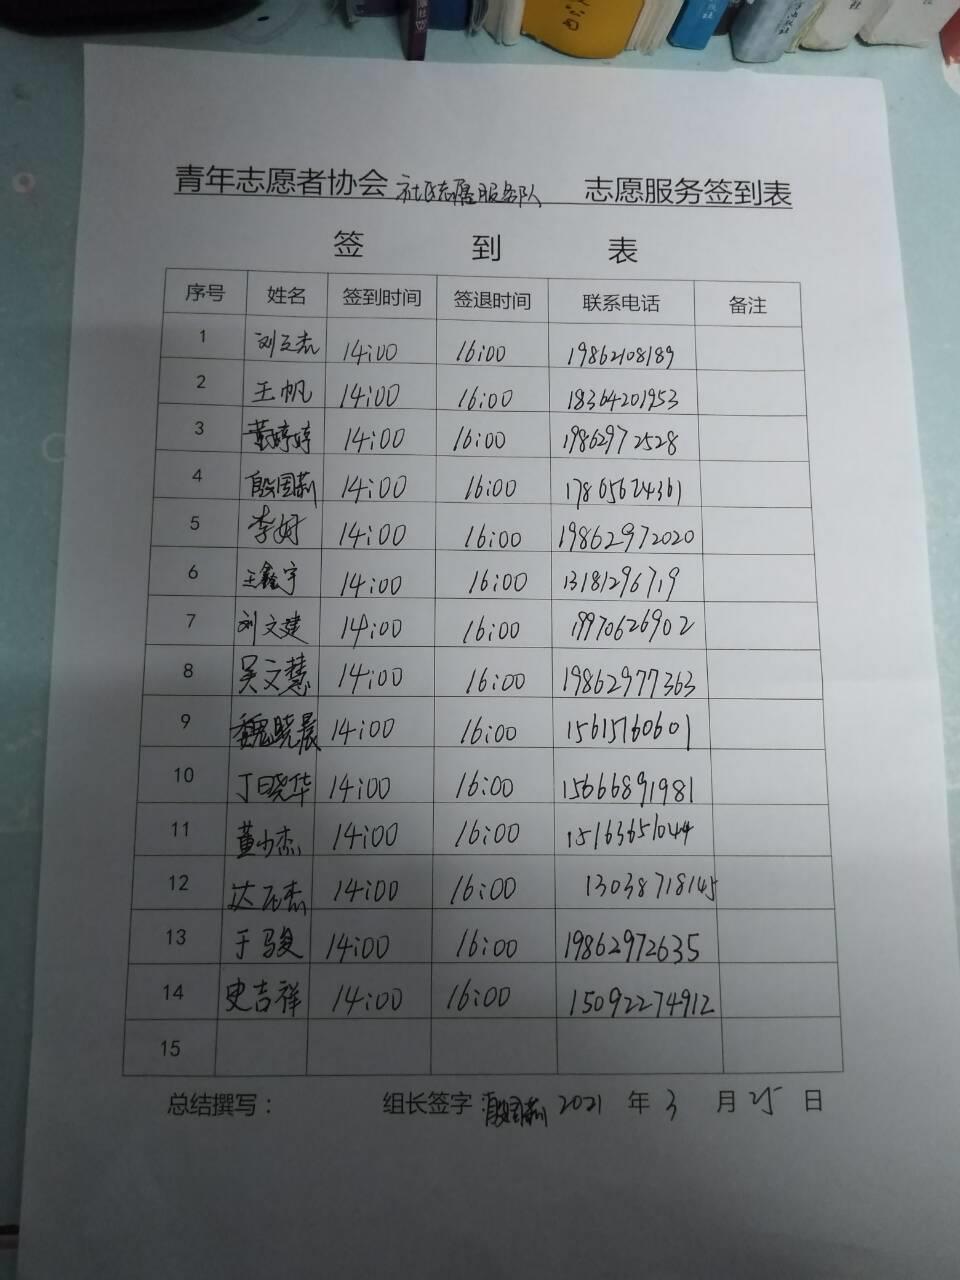 青年志愿者协会 社区志愿服务队 志愿服务签到表
签 到 表
序号 姓名 签到时间 签退时间 联系电话 备注
1 刘立杰 14:00 16:00 19862108189
2 王帆 14:00 16:00 18364201953
3 董婷婷 14:00 16:00 19862972528
4 殷国莉 14:00 16:00 17865624361
5 李好 14:00 16:00 19862972020
6 王鑫宇 14:00 16:00 13181296719
7 刘文建 14:00 16:00 19970626902
8 吴文慧 14:00 16:00 19862977363
9 魏晓晨 14:00 16:00 15615760601
10 丁晓华 14:00 16:00 15666891981
11 董少杰 14:00 16:00 15163651044
12 达 杰 14:00 16:00 13038718145
13 于骏 14:00 16:00 19862972635
14 史吉祥 14:00 16:00 15092274912
15
总结撰写： 组长签字：殷国莉 2021 年 3 月 25 日